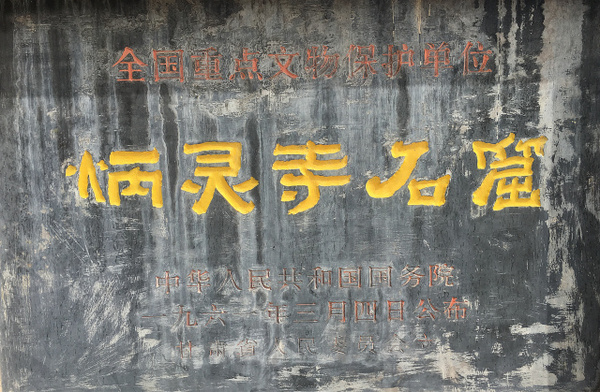 全国重点文物保护单位
炳灵寺石窟
中华人民共和国国务院
一九六一年三月四日公布
甘肃省人民委员会